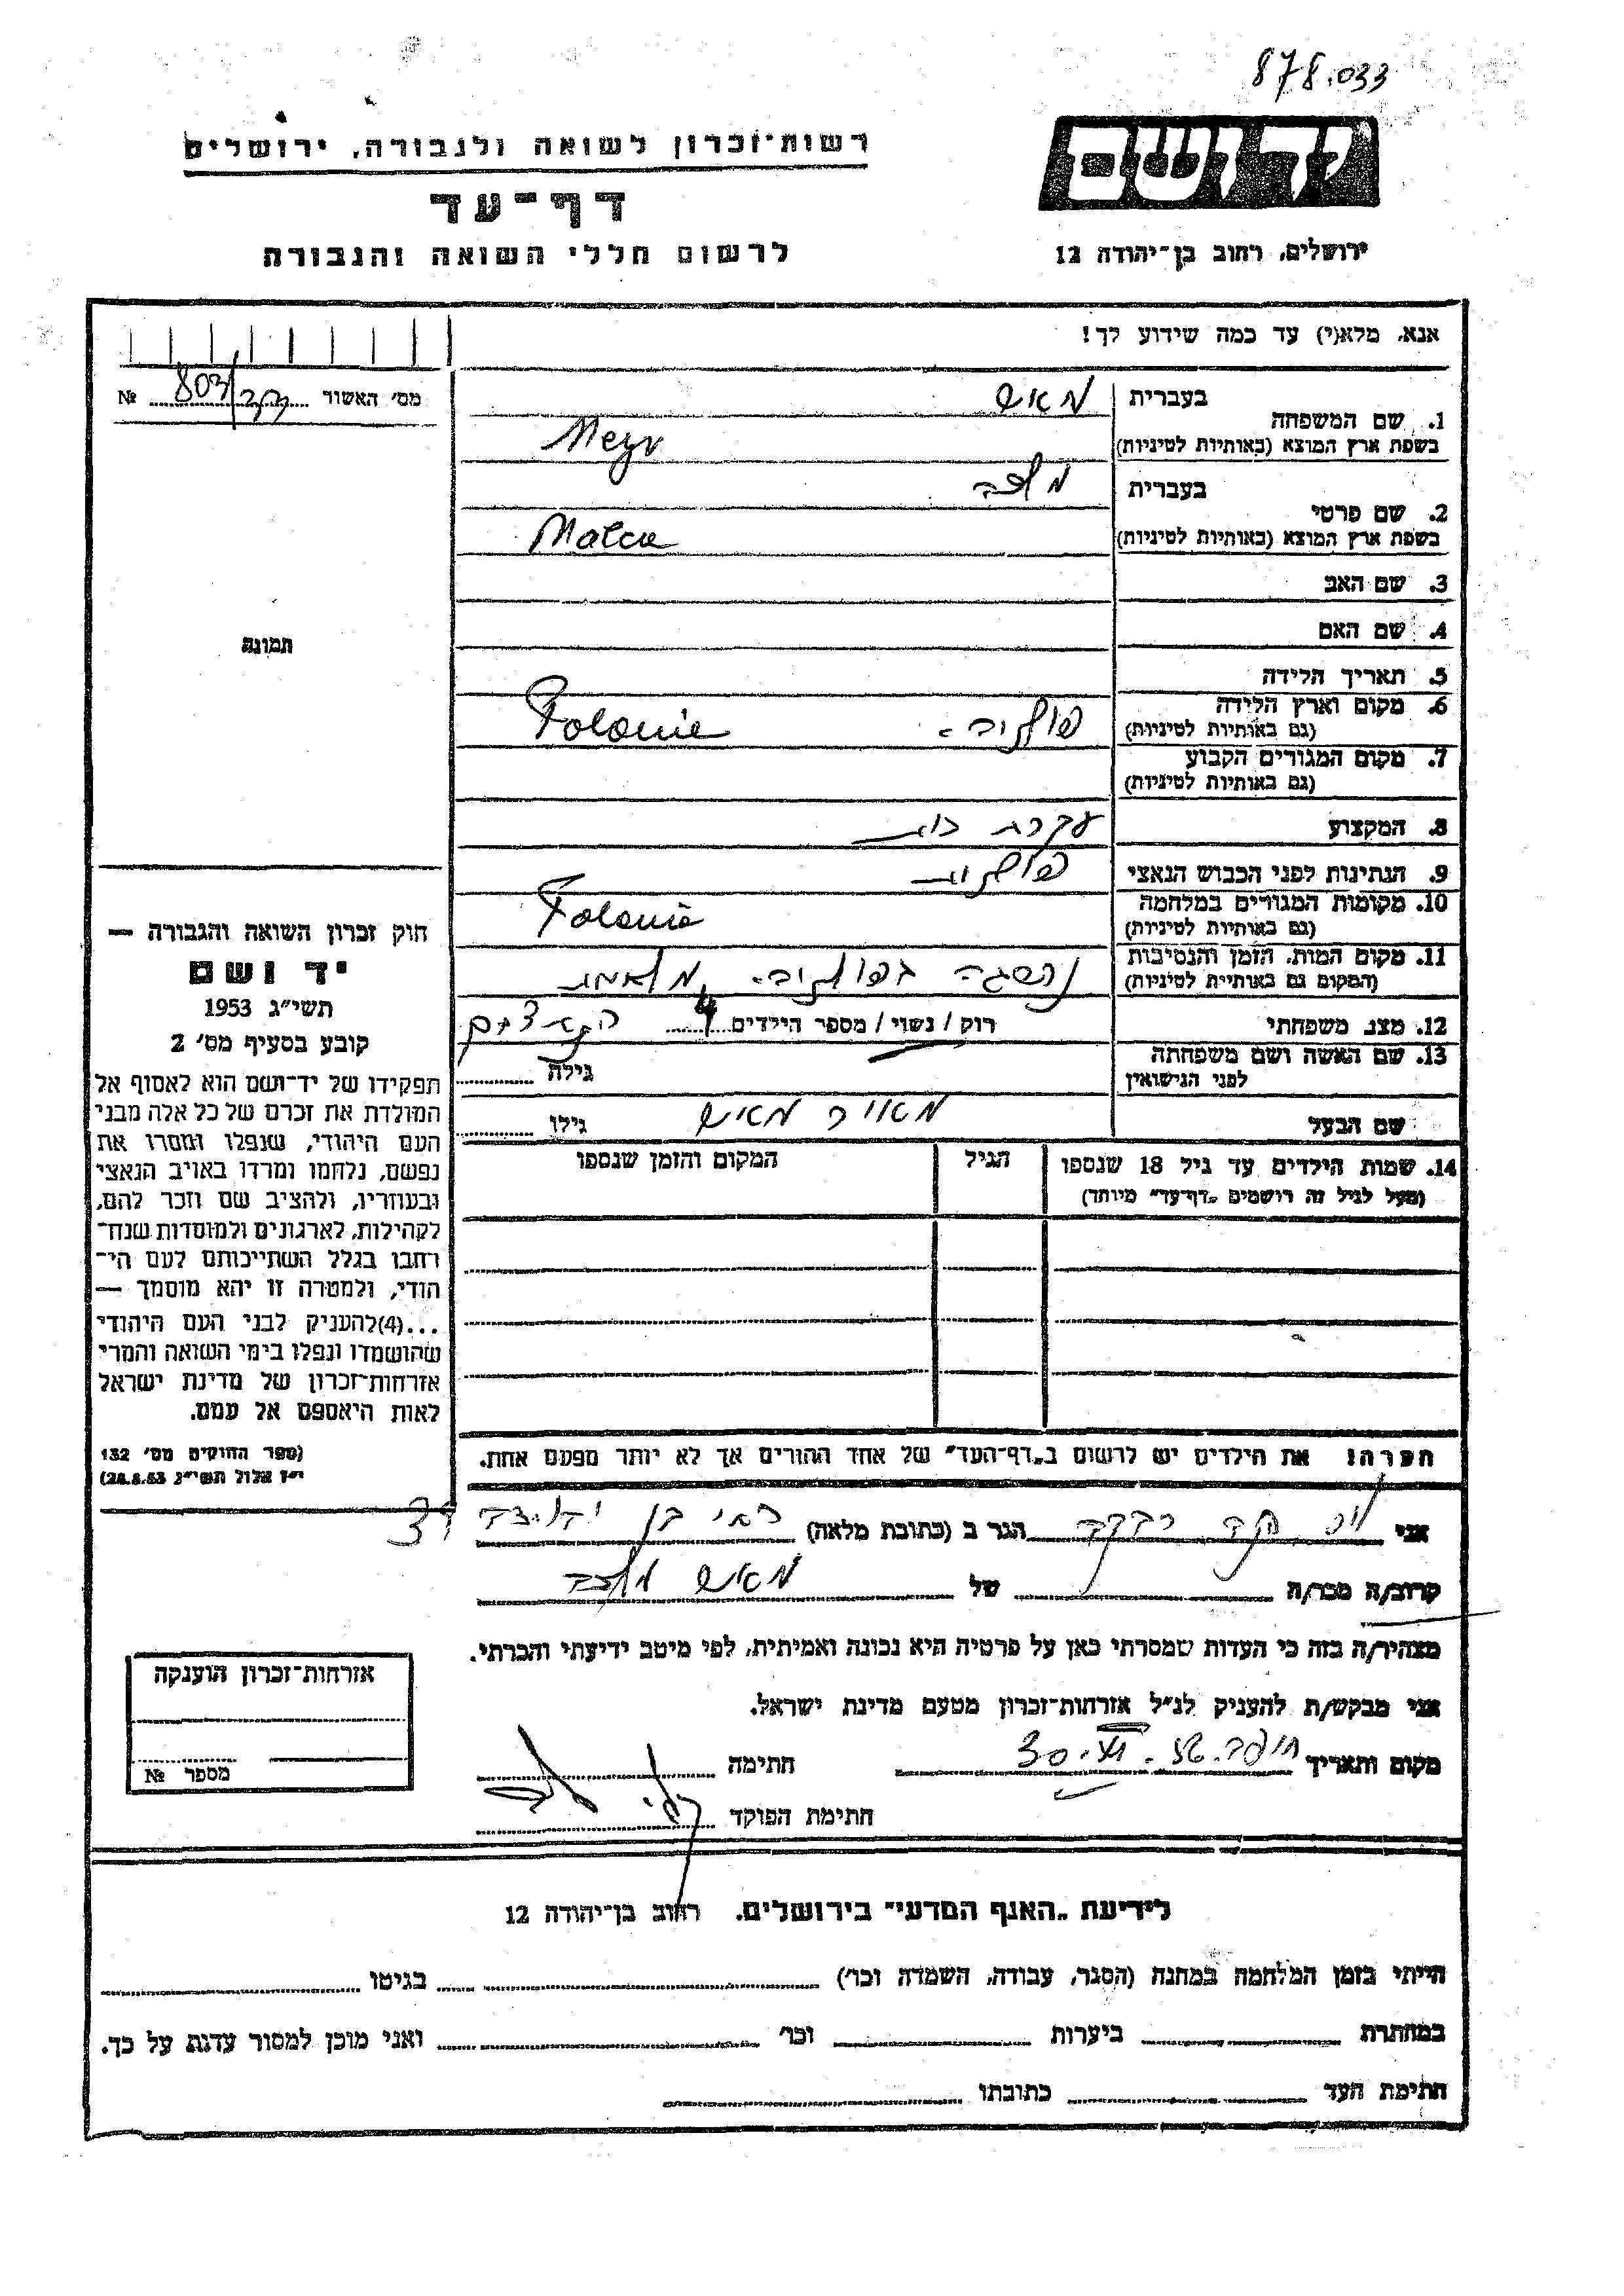 878.033
יד ושם
רשות־זכרון לשואה ולגבורה, ירושלים
דף־עד
לרשום חללי השואה והגבורה
ירושלים, רחוב בן־יהודה 12
אנא, מלא(י) עד כמה שידוע לך!
מס׳ האשור 803/ №
1. שם המשפחה
בעברית
בשפת ארץ המוצא (באותיות לטיניות)
2. שם פרטי
בעברית מלכה
בשפת ארץ המוצא (באותיות לטיניות) Malca
3. שם האב
4. שם האם
תמונה
5. תאריך הלידה
6. מקום וארץ הלידה
(גם באותיות לטיניות) פולניה - Polonie
7. מקום המגורים הקבוע
(גם באותיות לטיניות)
8. המקצוע עקרת בית
9. הנתינות לפני הכבוש הנאצי פולנית
10. מקומות המגורים במלחמה
(גם באותיות לטיניות) Polonie
11. מקום המות, הזמן והנסיבות
(המקום גם באותיית לטיניות) נהפגה בפולניה.
12. מצב משפחתי רוק / נשוי / מספר הילדים 4
13. שם האשה ושם משפחתה
לפני הנישואין גילה
שם הבעל מאיר גילו
14. שמות הילדים עד גיל 18 שנספו
(מעל לגיל זה רושמים „דף־עד״ מיוחד)
הגיל
המקום והזמן שנספו
חוק זכרון השואה והגבורה —
יד ושם
תשי״ג 1953
קובע בסעיף מס׳ 2
תפקידו של יד־ושם הוא לאסוף אל
המולדת את זכרם של כל אלה מבני
העם היהודי, שנפלו ומסרו את
נפשם, נלחמו ומרדו באויב הנאצי
ובעוזריו, ולהציב שם וזכר להם,
לקהילות, לארגונים ולמוסדות שנח־
רחבו בגלל השתייכותם לעם הי־
הודי, ולמטרה זו יהא מוסמך —
...(4)להעניק לבני העם היהודי
שהושמדו ונפלו בימי השואה והמרי
אזרחות־זכרון של מדינת ישראל
לאות היאספם אל עמם.
(ספר החוקים מס׳ 132
י״ז אלול תשי״ג 28.8.53)
הערה! את הילדים יש לרשום ב„דף־העד״ של אחד ההורים אך לא יותר מפעם אחת.
אני רבקה הגר ב (כתובת מלאה)
קרוב/ה מכר/ה של מלכה
מצהיר/ה בזה כי העדות שמסרתי כאן על פרטיה היא נכונה ואמיתית, לפי מיטב ידיעתי והכרתי.
אני מבקש/ת להעניק לנ״ל אזרחות־זכרון מטעם מדינת ישראל.
מקום ותאריך חיפה. 30 חתימה
חתימת הפוקד
אזרחות־זכרון הוענקה
מספר №
לידיעת „האגף המדעי״ בירושלים. רחוב בן־יהודה 12
הייתי בזמן המלחמה במחנה (הסגר, עבודה, השמדה וכו׳) בגיטו
במחתרת ביערות וכו׳ ואני מוכן למסור עדות על כך.
חתימת העד כתובתו